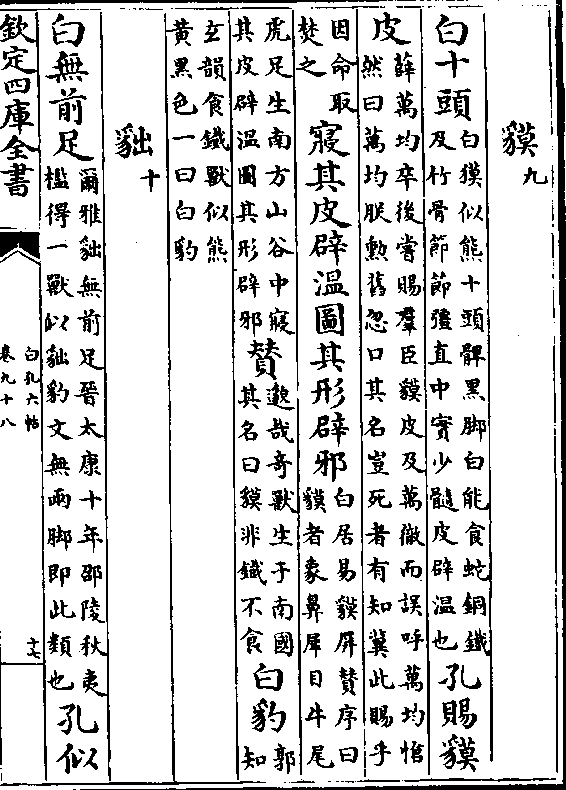 貘九
白十頭白獏似熊十頭髀黑脚白能食蛇銅鐵及竹骨節節彊直中實少髓皮辟温也孔賜貘
皮薛萬均卒後嘗賜羣臣貘皮及萬徹而誤呼萬均愴然曰萬均朕勲舊忽口其名豈死者有知冀此賜乎
因命取焚之寢其皮辟温圖其形辟邪白居易貘屏賛序曰貘者象鼻犀目牛尾
虎足生南方山谷中寢其皮辟温圖其形辟邪賛邈哉奇獸生于南國其名曰貘非鐵不食白豹郭知
玄韻食鐵獸似熊黄黑色一曰白豹
貀十
白無前足爾雅貀無前足晉太康十年邵陵秋夷檻得一獸似貀豹文無兩脚即此類也孔似
欽定四庫全書
白孔六帖
卷九十八
十七